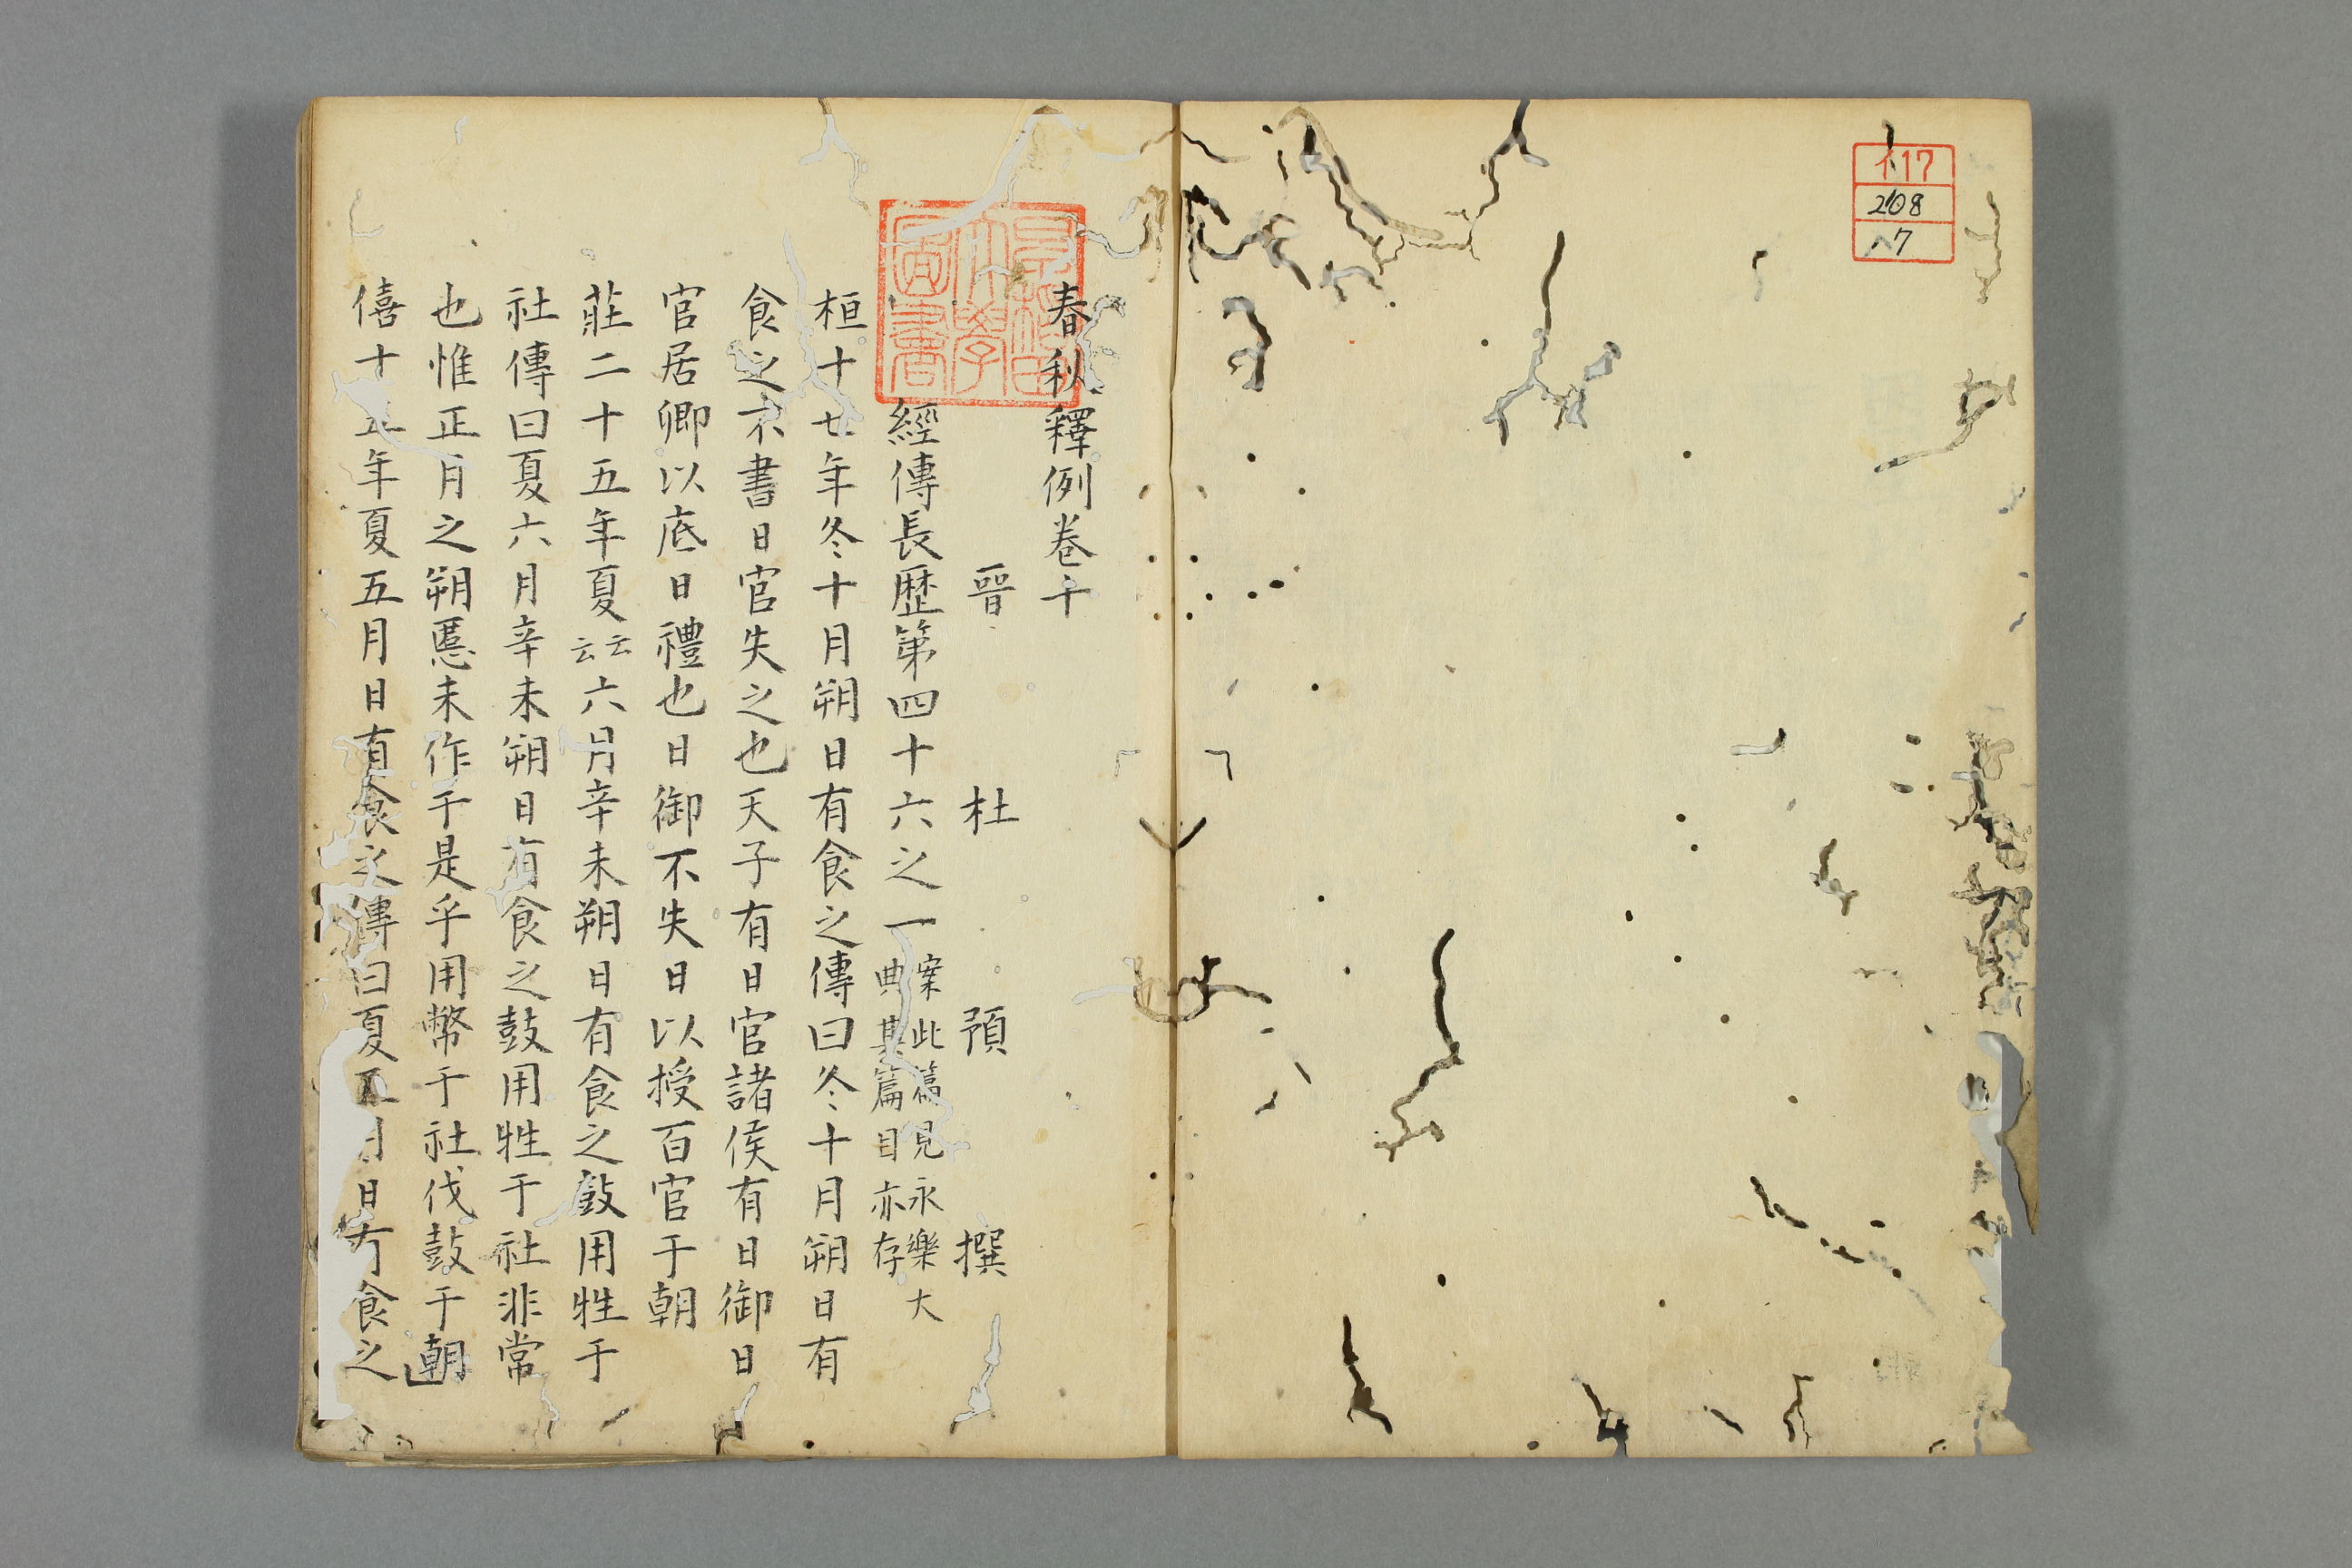 イ17
208
7
春秋釋例卷十
晉 杜 預 撰
經傳長歷第四十六之一 案此篇見永樂大
典其篇目亦存
桓十七年冬十月朔日有食之傳曰冬十月朔日有
食之不書日官失之也天子有日官諸侯有日御日
官居卿以底日禮也日御不失日以授百官于朝
莊二十五年夏云云六月辛未朔日有食之鼓用牲于
社傳曰夏六月辛未朔日有食之鼓用牲于社非常
也惟正月之朔慝未作于是乎用幣于社伐鼓于朝
僖十五年夏五月日有食之傳曰夏五月日有食之
早稻田大學圖書